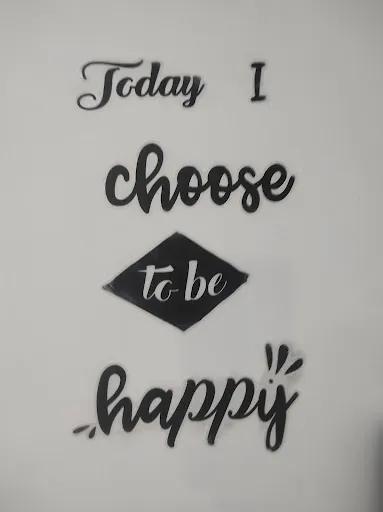 Today I
choose
to be
happy